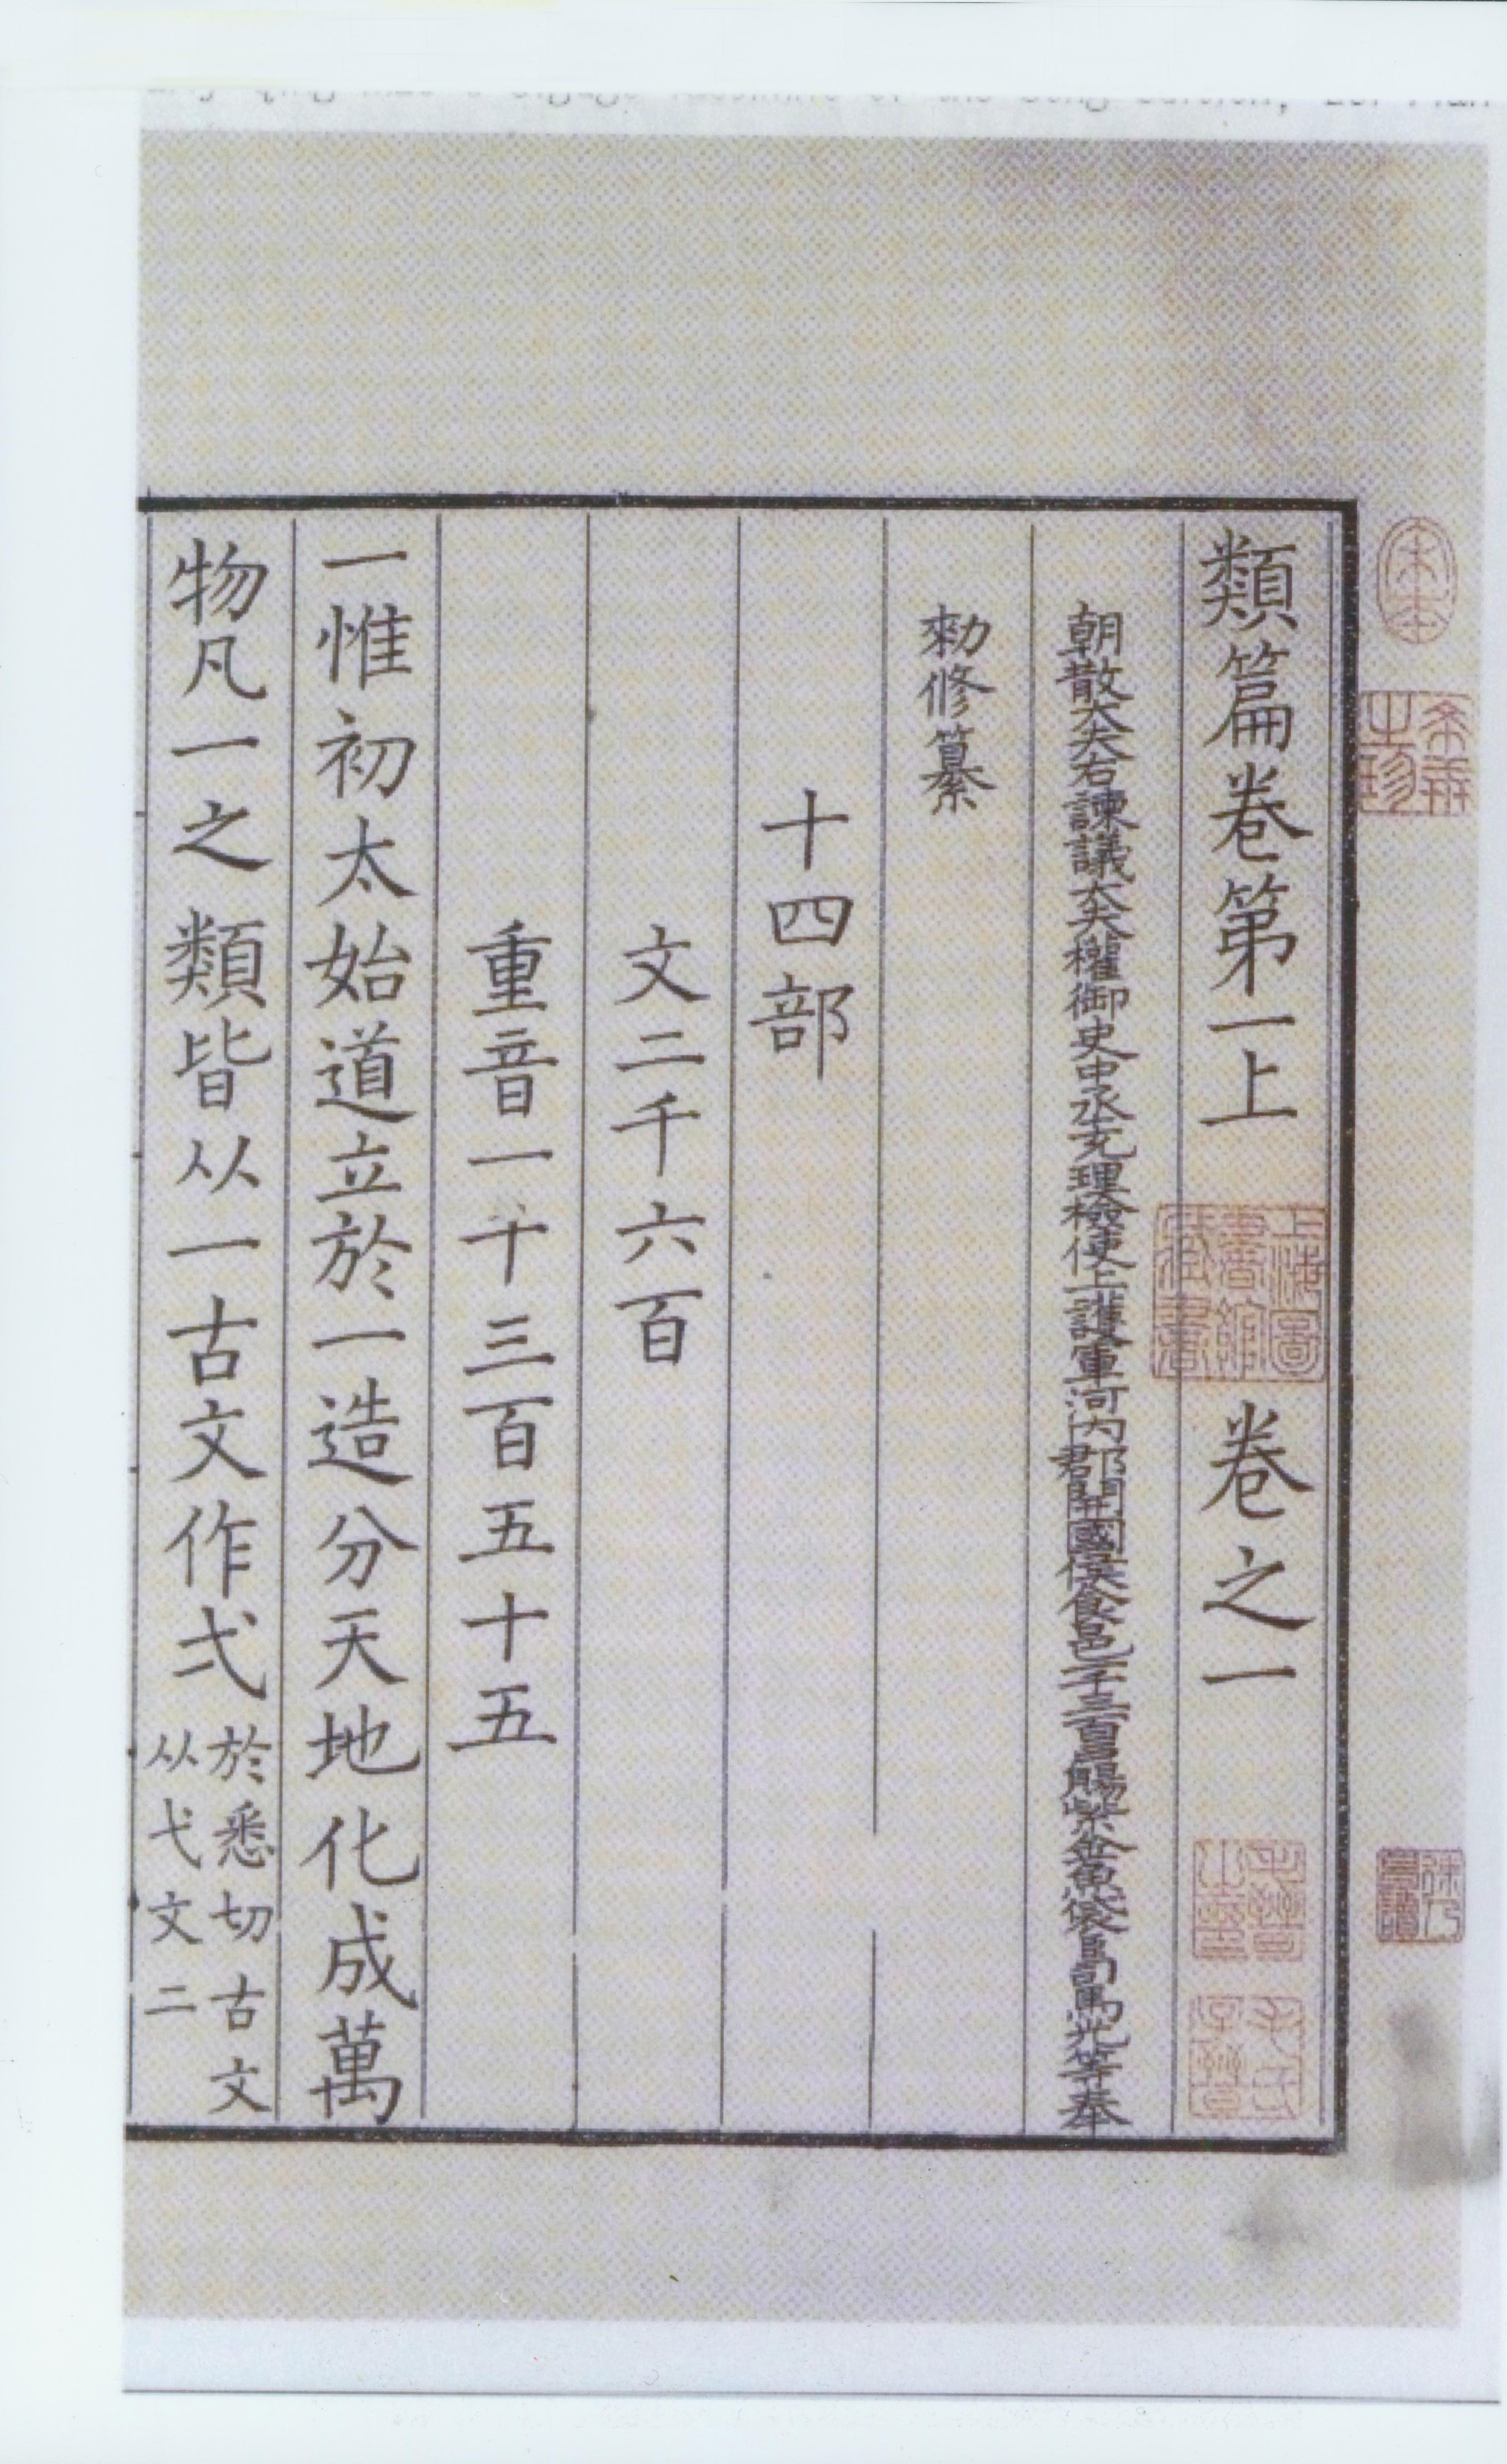 類篇卷第一上 卷之一
朝散大夫右諫議大夫權御史中丞充理檢使上護軍河內郡開國侯食邑一千三百戶賜紫金魚袋臣司馬光等奉
勑修纂
十四部
文二千六百
重音一千三百五十五
一惟初太始道立於一造分天地化成萬
物凡一之類皆从一古文作弌於悉切古文从弋文二
宋本
希世之珍
上海圖書館藏書
毛晉之印
毛氏子晉